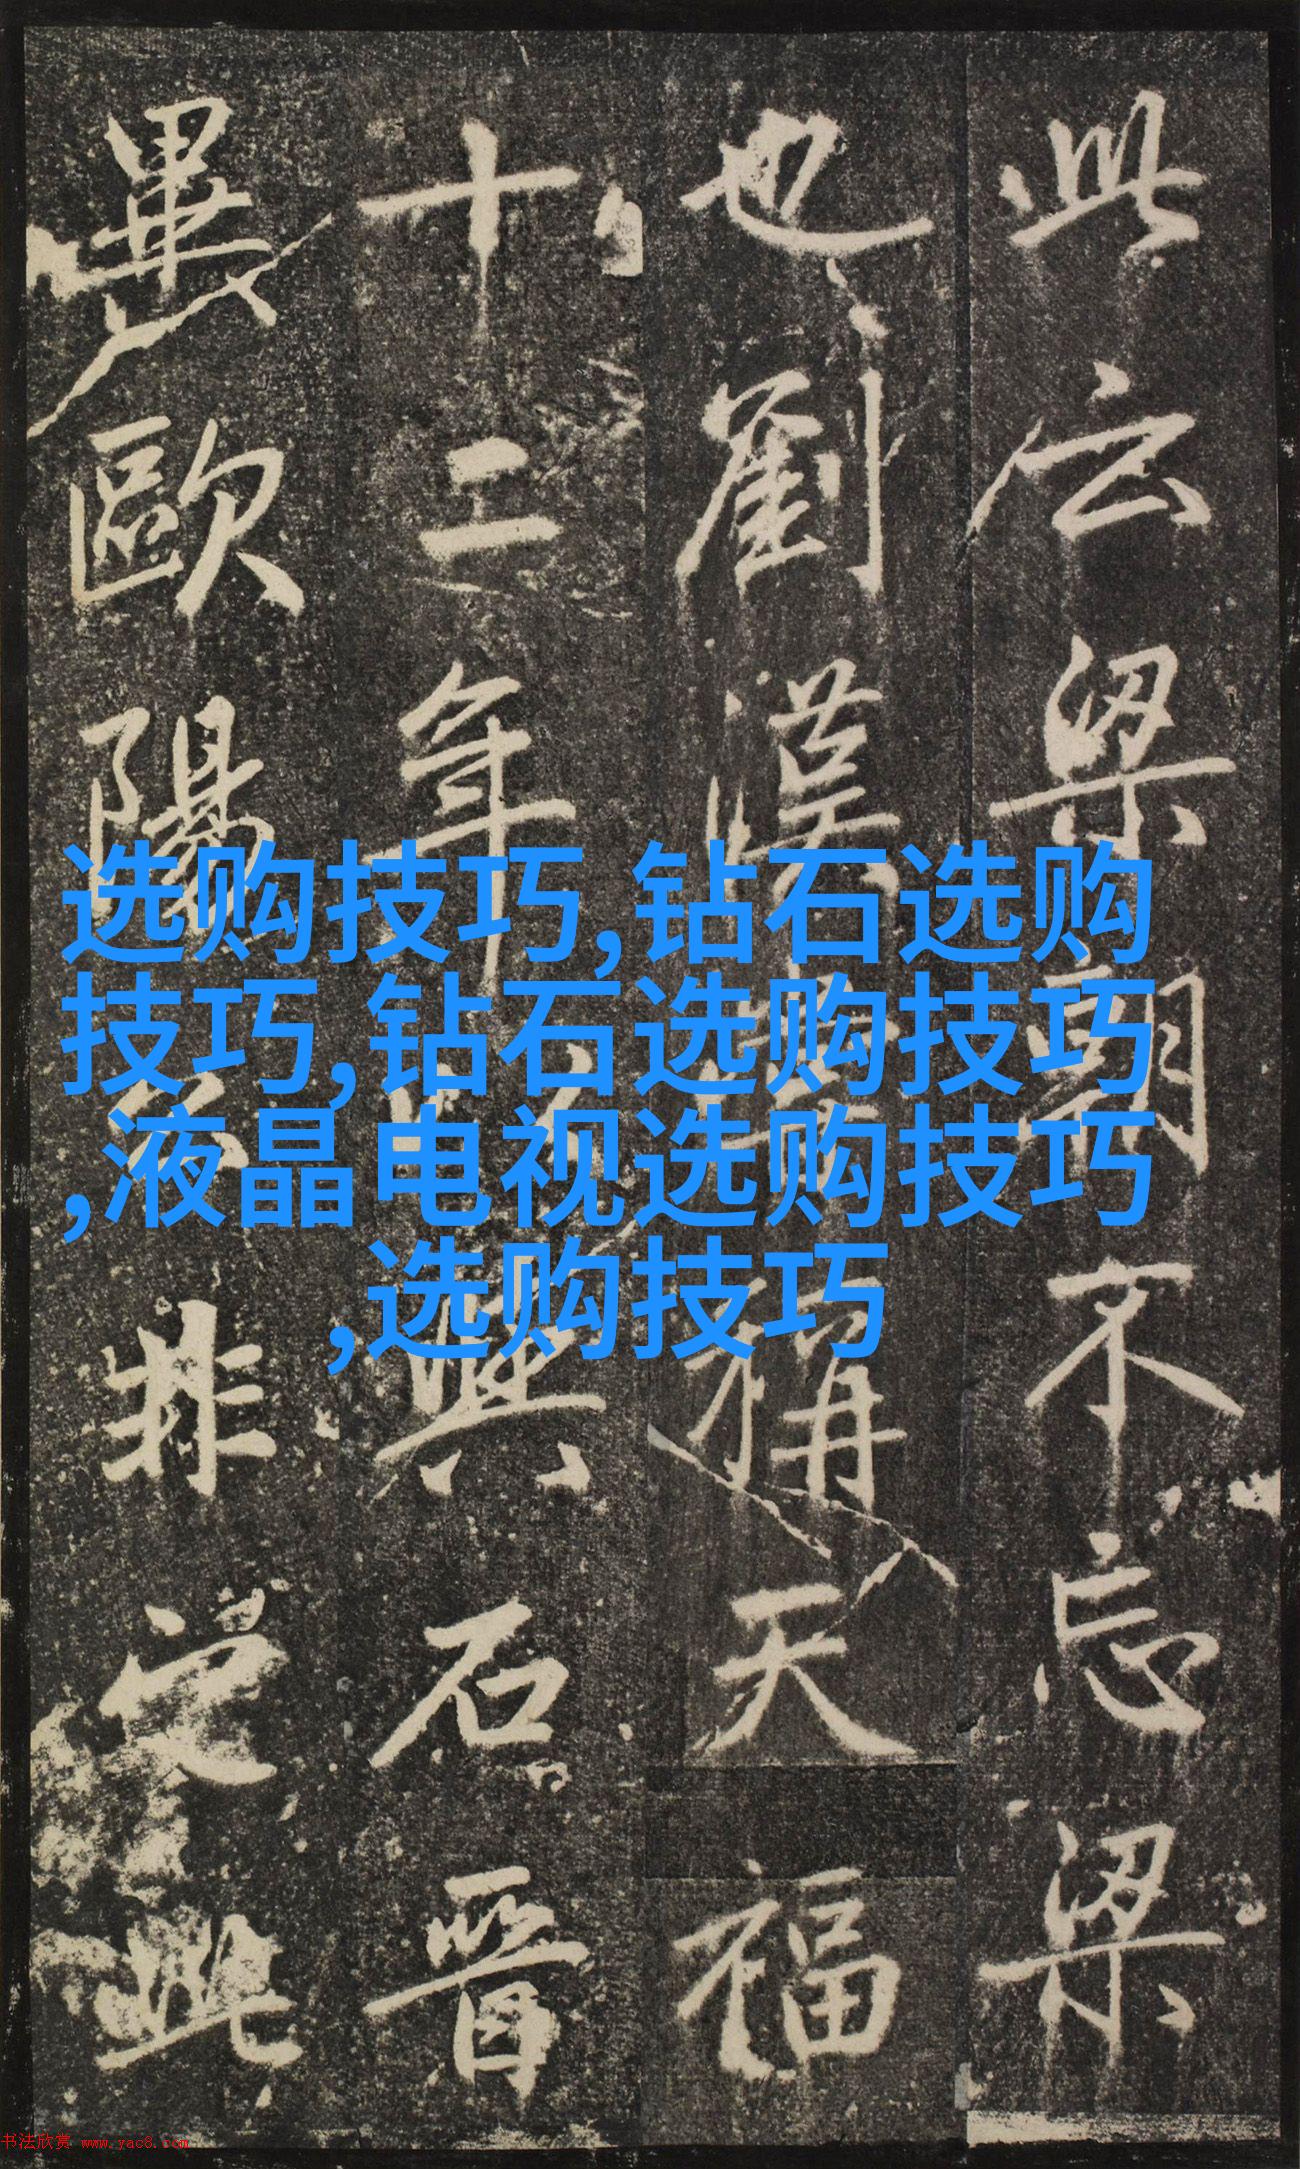 此云梁朝不忘梁
也劉漢稱天福
十二年與石晉
畢歐陽公非此
选购技巧,钻石选购
技巧,钻石选购技巧
,液晶电视选购技巧
,选购技巧
书法欣赏 www.yac8.com